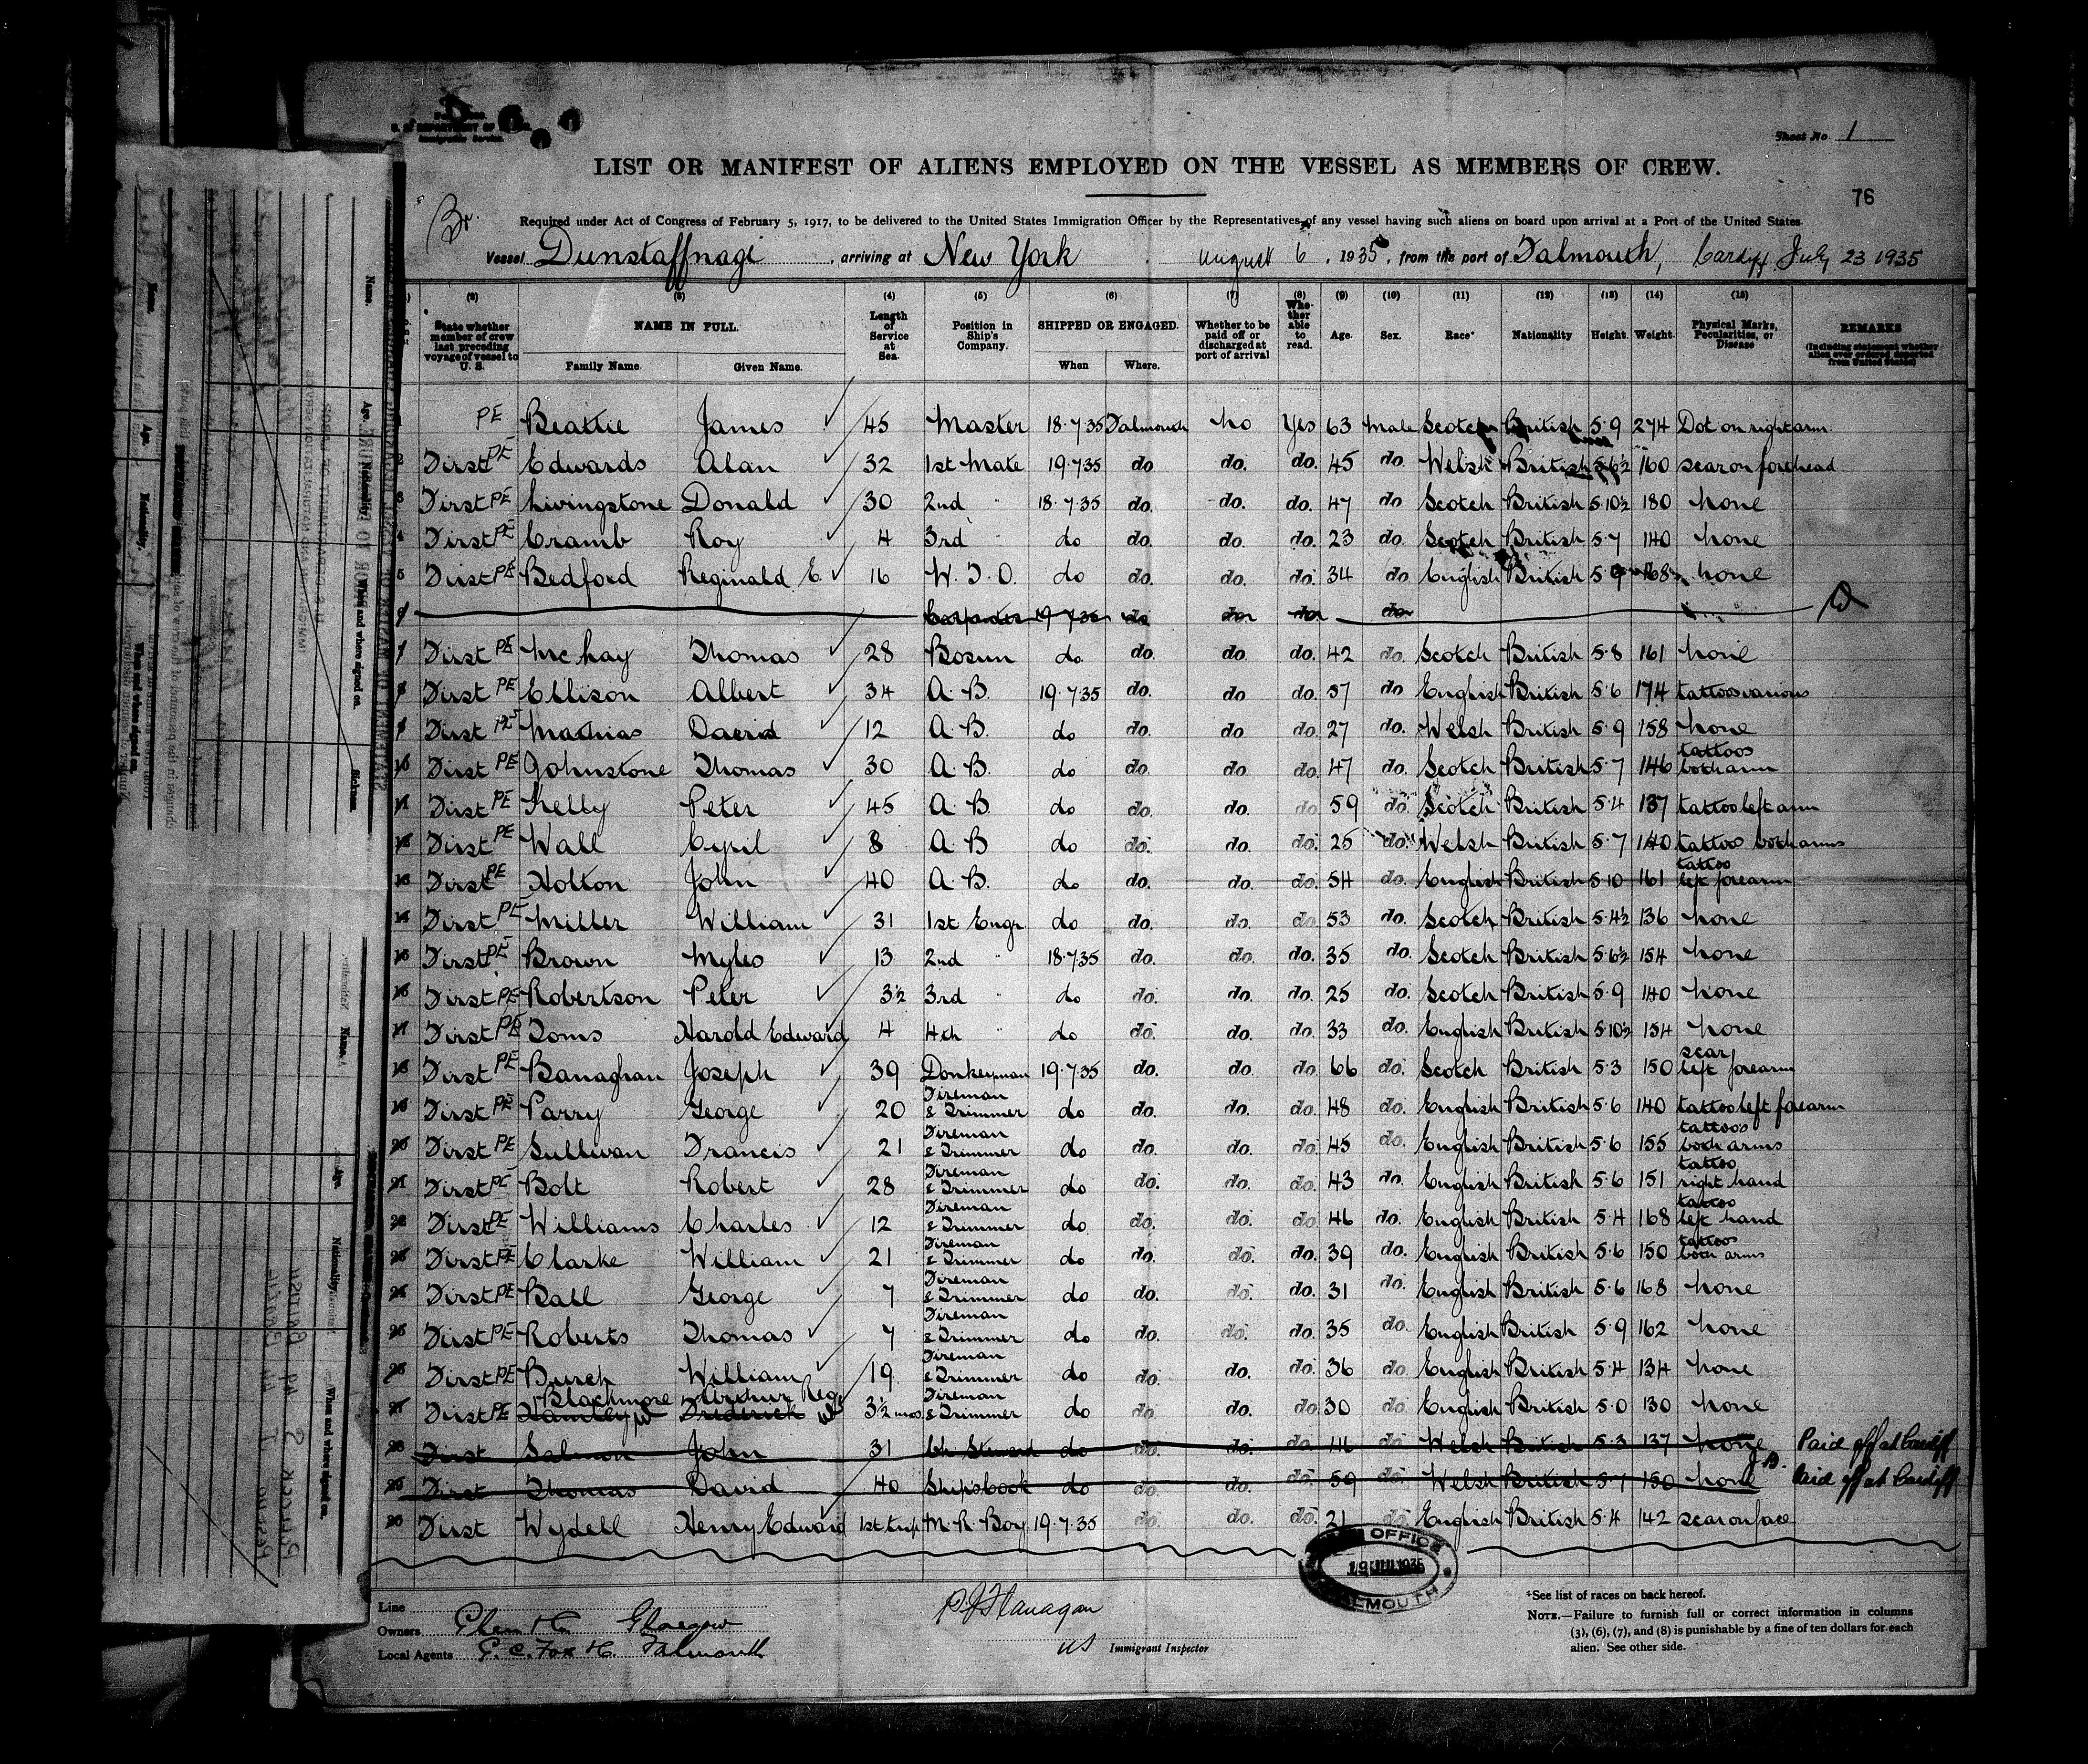 Sheet No. 1
LIST OR MANIFEST OF ALIENS EMPLOYED ON THE VESSEL AS MEMBERS OF CREW.
76
Br.
Required under Act of Congress of February 5, 1917, to be delivered to the United States Immigration Officer by the Representatives of any vessel having such aliens on board upon arrival at a Port of the United States
Vessel Dunstaffnage, arriving at New York August 6, 1935, from the port of Falmouth, Cardiff July 23 1935
(2) (3) (4) (5) (6) (7) (8) (9) (10) (11) (12) (13) (14) (15)
State whether member of crew last preceding voyage of vessel to U. S. NAME IN FULL. Family Name. Given Name. Length of Service at Sea. Position in Ship's Company. SHIPPED OR ENGAGED. When Where. Whether to be paid off or discharged at port of arrival Whether able to read. Age. Sex. Race* Nationality Height. Weight. Physical Marks, Peculiarities, or Disease REMARKS (Including statement whether alien ever ordered deported from United States)
PE Beattie James 45 Master 18.7.35 Falmouth No Yes 63 Male Scotch British 5.9 274 Dot on right arm.
2 First PE Edwards Alan 32 1st Mate 19.7.35 do do. do. 45 do. Welsh British 5.6½ 160 scar on forehead
3 First PE Livingstone Donald 30 2nd " 18.7.35 do. do. do. 47 do Scotch British 5.10½ 180 none
4 First PE Cramb Roy 4 3rd " do do. do. do. 23 do. Scotch British 5.7 140 none
5 First PE Bedford Reginald E. 16 W.T.O. do do. do. do. 34 do English British 5.9 168 none
Carpenter 19.7.35 do do do do
7 First PE McKay Thomas 28 Bosun do. do. do. do. 42 do. Scotch British 5.8 161 none
8 First PE Ellison Albert 34 A.B. 19.7.35 do. do do. 57 do English British 5.6 174 tattoos various
9 First Mathias David 12 A.B. do do. do. do. 27 do. Welsh British 5.9 158 none
10 First PE Johnstone Thomas 30 A.B. do do. do. do. 47 do. Scotch British 5.7 146 tattoos both arm
11 First PE Kelly Peter 45 A.B. do do. do. do 59 do. Scotch British 5.4 137 tattoo left arm
12 First PE Wall Cyril 8 A.B do do. do. do. 25 do. Welsh British 5.7 140 tattoo both arms
13 First PE Holton John 40 A.B. do do. do. do. 54 do. English British 5.10 161 tattoo left forearm
14 First PE Miller William 31 1st Engr do do. do. do 53 do. Scotch British 5.4½ 136 none
15 First PE Brown Myles 13 2nd " 18.7.35 do. do. do. 35 do. Scotch British 5.6½ 154 none
16 First PE Robertson Peter 3½ 3rd " do do. do. do. 25 do. Scotch British 5.9 140 none
17 First PE Toms Harold Edward 4 4th " do do. do. do. 33 do. English British 5.10½ 154 none
18 First PE Banaghan Joseph 39 Donkeyman 19.7.35 do. do. do. 66 do. Scotch British 5.3 150 scar left forearm
19 First PE Parry George 20 Fireman & Trimmer do do. do. do. 48 do. English British 5.6 140 tattoo left forearm
20 First PE Sullivan Francis 21 Fireman & Trimmer do do. do. do. 45 do. English British 5.6 155 tattoos both arms
21 First PE Bolt Robert 28 Fireman & Trimmer do do. do. do. 43 do. English British 5.6 151 tattoo right hand
22 First PE Williams Charles 12 Fireman & Trimmer do do. do. do. 46 do. English British 5.4 168 tattoo left hand
23 First PE Clarke William 21 Fireman & Trimmer do do. do. do. 39 do. English British 5.6 150 tattoos both arms
24 First PE Ball George 7 Fireman & Trimmer do do. do. do. 31 do. English British 5.6 168 none
25 First PE Roberts Thomas 7 Fireman & Trimmer do do. do. do. 35 do. English British 5.9 162 none
26 First PE Burch William 19 Fireman & Trimmer do do. do. do. 36 do English British 5.4 134 none
27 First PE Blackmore Arthur Reg. Frederick 3½ mos Fireman & Trimmer do do do. do. 30 do English British 5.0 130 none
28 First Salmon John 31 Ch. Steward do do. do. do. 46 do Welsh British 5.3 137 none Paid off at Cardiff
29 First Thomas David 40 Ships Cook do do. do. do. 59 do. Welsh British 5.7 150 none Paid off at Cardiff
30 First Wydell Henry Edward 1st trip M.R. Boy 19.7.35 do. do. do. 21 do English British 5.4 142 scar on face
OFFICE
19 JUL 1935
FALMOUTH
Line
Owners Glen & Co. Glasgow
Local Agents G. C. Fox & Co. Falmouth
P J Flanagan
US Immigrant Inspector
*See list of races on back hereof.
NOTE.—Failure to furnish full or correct information in columns
(3), (6), (7), and (8) is punishable by a fine of ten dollars for each
alien. See other side.